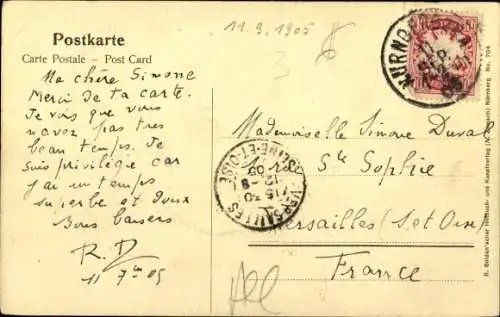 11.9.1905
Postkarte
Carte Postale – Post Card
Ma chère Simone
Merci de ta carte.
Je vois que vous
n'avez pas tres
beau temps. Je
suis privilégié car
j'ai un temps
superbe et doux
Bons baisers
R. D
11 7bre 05
NÜRNB
Mademoiselle Simone Duval
Ste Sophie
Versailles (S. et Oise)
France
VERSAILLES
SEINE-ET-OISE
15 30
12 - 9
05
3